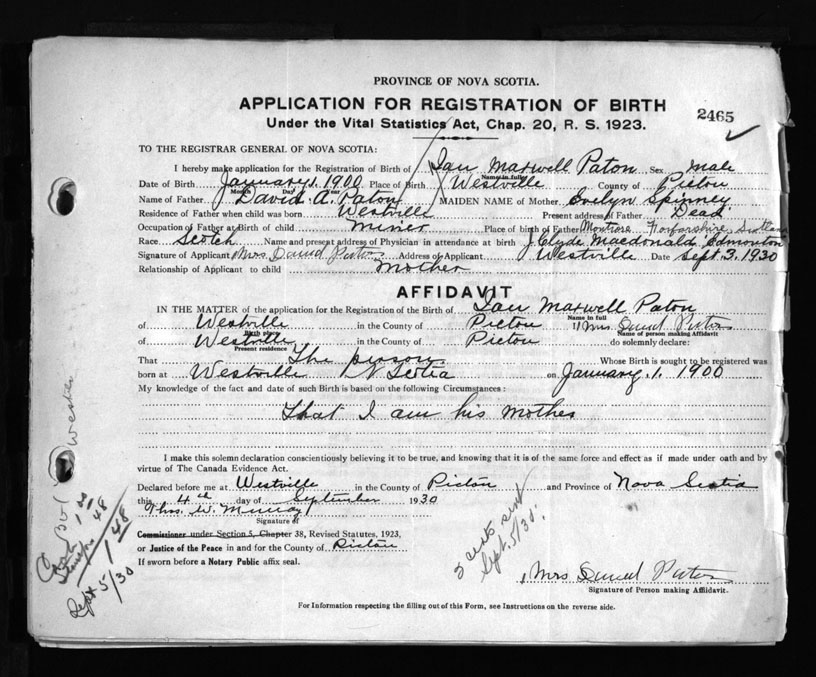 PROVINCE OF NOVA SCOTIA.
APPLICATION FOR REGISTRATION OF BIRTH
2465
Under the Vital Statistics Act, Chap. 20, R. S. 1923.
TO THE REGISTRAR GENERAL OF NOVA SCOTIA:
I hereby make application for the Registration of Birth of Ian Maxwell Paton Sex Male
Name in full
Date of Birth January 1. 1900 Place of Birth Westville County of Pictou
Month Day
Name of Father David A. Paton MAIDEN NAME of Mother Evelyn Spinney
Residence of Father when child was born Westville Present address of Father Dead
Occupation of Father at Birth of child miner Place of birth of Father Montrose Forfarshire, Scotland
Race Scotch Name and present address of Physician in attendance at birth J. Clyde Macdonald, Edmonton
Signature of Applicant Mrs David Paton Address of Applicant Westville Date Sept. 3. 1930
Relationship of Applicant to child Mother
AFFIDAVIT
IN THE MATTER of the application for the Registration of the Birth of Ian Maxwell Paton
Name in full
of Westville in the County of Pictou I, Mrs David Paton
Birth place Name of person making Affidavit
of Westville in the County of Pictou do solemnly declare:
Present residence
That The person Whose Birth is sought to be registered was
born at Westville N Scotia on January. 1. 1900
My knowledge of the fact and date of such Birth is based on the following Circumstances:
That I am his Mother
I make this solemn declaration conscientiously believing it to be true, and knowing that it is of the same force and effect as if made under oath and by
virtue of The Canada Evidence Act.
Declared before me at Westville in the County of Pictou and Province of Nova Scotia
this 4th day of September 1930
Thos. W. Murray
Signature of
Commissioner under Section 5, Chapter 38, Revised Statutes, 1923,
or Justice of the Peace in and for the County of Pictou
If sworn before a Notary Public affix seal.
Sept 5/30.
Mrs David Paton
Signature of Person making Affidavit.
For Information respecting the filling out of this Form, see Instructions on the reverse side.
1 48
Sept 5/30